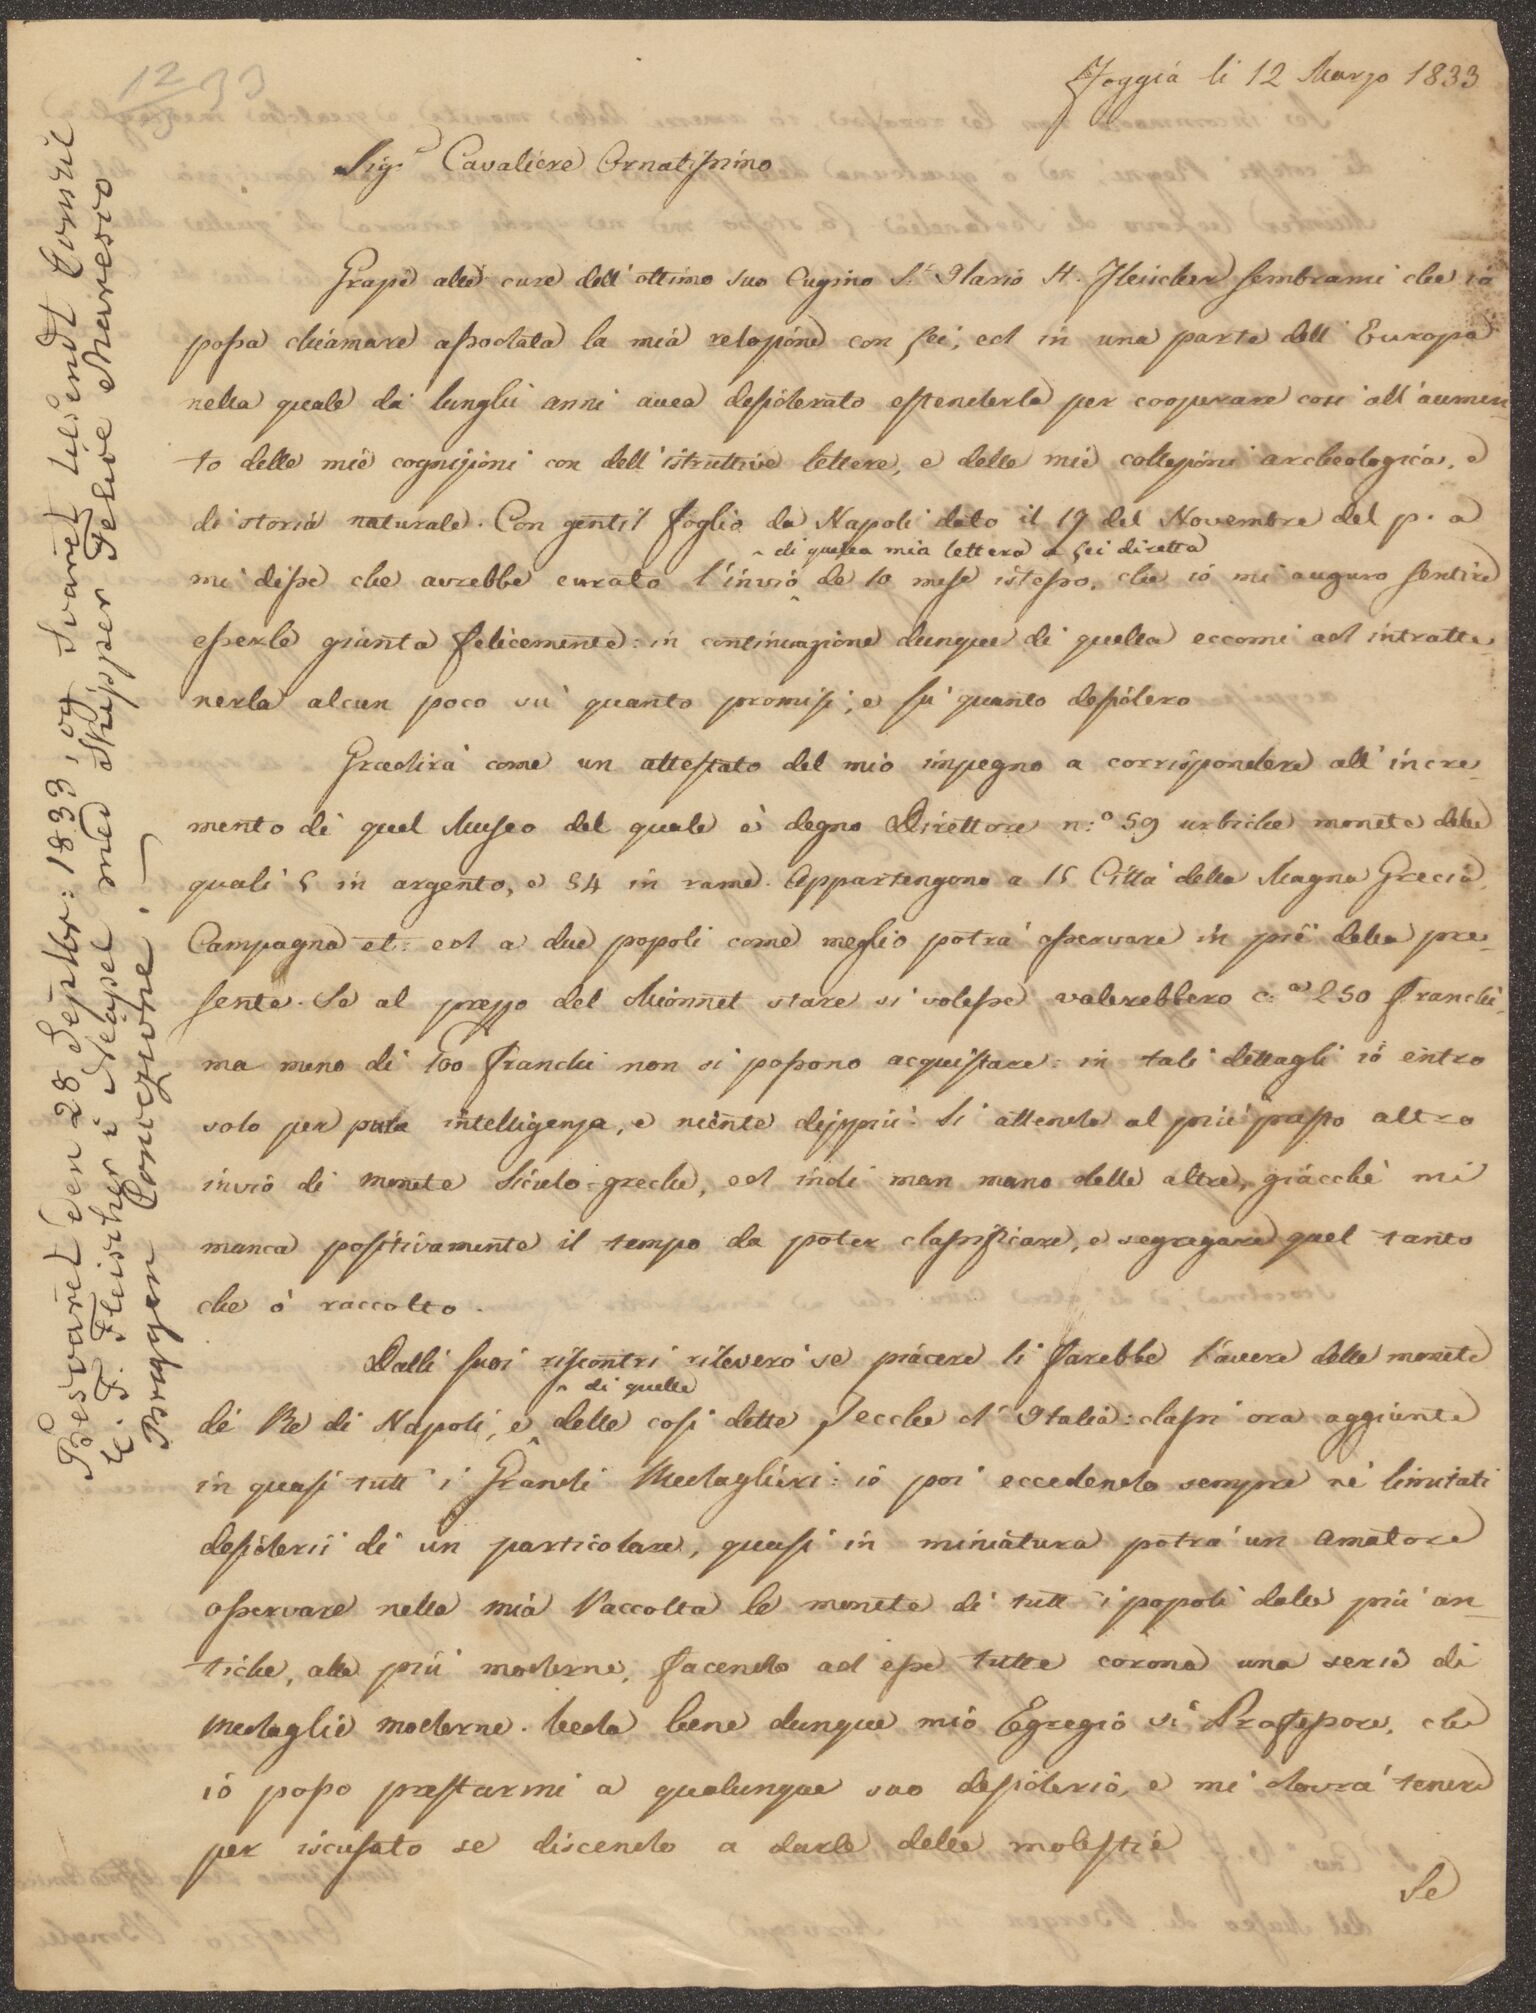 12/33
Foggia li 12 Marzo 1833
Sigr Cavaliere Ornatissimo
Grazie alle cure dell'ottimo suo Cugino Sr Ilario H. Fleischer sembrami che io
possa chiamare assodata la mia relazione con Lei, ed in una parte dell'Europa
nella quale da lunghi anni avea desiderato estenderla per cooperare così all'aumen-
to delle mie cognizioni con dell'istruttive lettere, e delle mie collezioni archeologica, e
di storia naturale. Con gentil foglio da Napoli dato il 19 del Novembre del p. a
^ di quella mia lettera a Lei diretta
mi disse che avrebbe curato l'invio de 10 mese istesso, che io mi auguro sentire
esserle giunta felicemente: in continuazione dunque di quella eccomi ad intratte-
nerla alcun poco su' quanto promisi, e su' quanto desidero
Gradirà come un attestato del mio impegno a corrispondere all'incre-
mento di quel Museo del quale è degno Direttore n:o 59 urbiche monete delle
quali 5 in argento, e 54 in rame. Appartengono a 15 Città della Magna Grecia,
Campagna et: ed a due popoli come meglio potrà osservare in piè della pre-
sente. Se al prezzo del Mionnet stare si volesse valerebbero c.a 250 franchi,
ma meno di 100 franchi non si possono acquistare: in tali dettagli io entro
solo per pula intelligenza, e niente dippiù. Si attenda al più presto altro
invio di monete Siculo-greche, ed indi man mano delle altre, giacchè mi
manca positivamente il tempo da poter classificare, e segregare quel tanto
che ò raccolto.
Dalli suoi riscontri rileverò se piacere li farebbe l'avere delle monete
^ di quelle
de' Re di Napoli, e delle così dette Zecche d'Italia: classi ora aggiunte
in quasi tutt'i Grandi Medaglieri: io poi eccedendo sempre ne' limitati
desiderii di un particolare, quasi in miniatura potrà un amatore
osservare nella mia Raccolta le monete di tutt'i popoli dalle più an-
tiche, alle più moderne, facendo ad esse tutte corona una serie di
medaglie moderne. Veda bene dunque mio Egregio Sr Professore, che
io posso prestarmi a qualunque suo desiderio, e mi dovrà tenere
per iscusato se discendo a darle delle molestie
Se
Besvaret den 28 Septbr: 1833, og Svaret tilsendt Consul
C. F. Fleischer i Neapel med Skipper Felice Maresco
Bryggen Convegvøne.